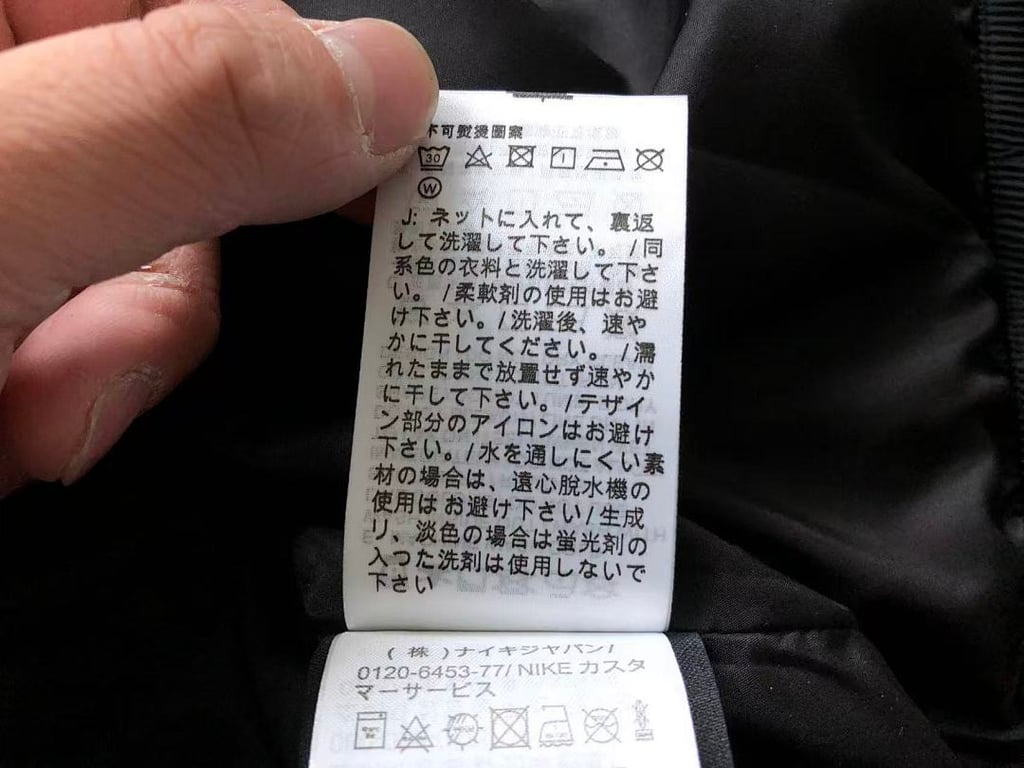 不可熨燙圖案
30
W
J: ネットに入れて、裏返
して洗濯して下さい。 /同
系色の衣料と洗濯して下さ
い。 /柔軟剤の使用はお避
け下さい。/洗濯後、速や
かに干してください。 /濡
れたままで放置せず速やか
に干して下さい。/デザイ
ン部分のアイロンはお避け
下さい。/水を通しにくい素
材の場合は、遠心脱水機の
使用はお避け下さい/生成
リ、淡色の場合は蛍光剤の
入つた洗剤は使用しないで
下さい
(株)ナイキジャパン/
0120-6453-77/ NIKE カスタ
マーサービス